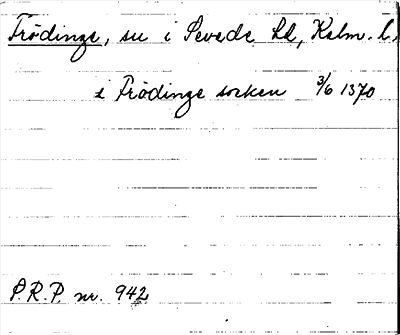 Frödinge, sn i Sevede hd, Kalm. l.
i Frödinge socken 3/6 1370
S.R.P. nr. 942